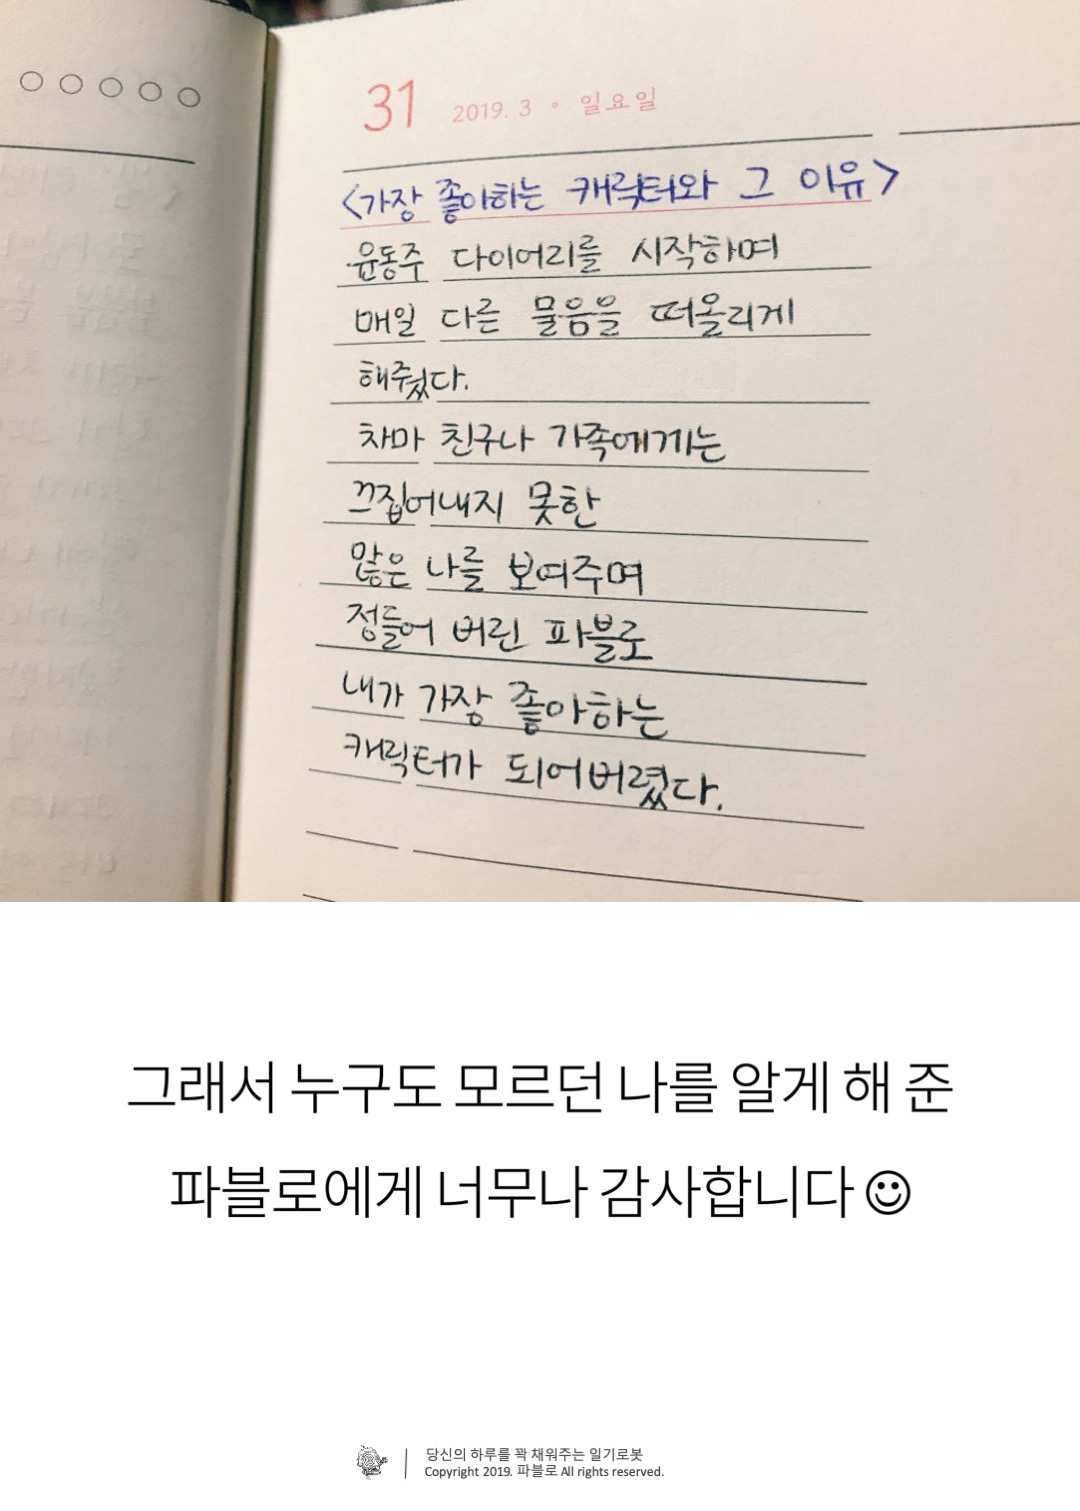 31 2019. 3 • 일요일
<가장 좋아하는 캐릭터와 그 이유>
윤동주 다이어리를 시작하며
매일 다른 물음을 떠올리게
해줬다.
차마 친구나 가족에게는
끄집어내지 못한
많은 나를 보여주며
정들어 버린 파블로
내가 가장 좋아하는
캐릭터가 되어버렸다.
그래서 누구도 모르던 나를 알게 해 준
파블로에게 너무나 감사합니다☺
당신의 하루를 꽉 채워주는 일기로봇
Copyright 2019. 파블로 All rights reserved.